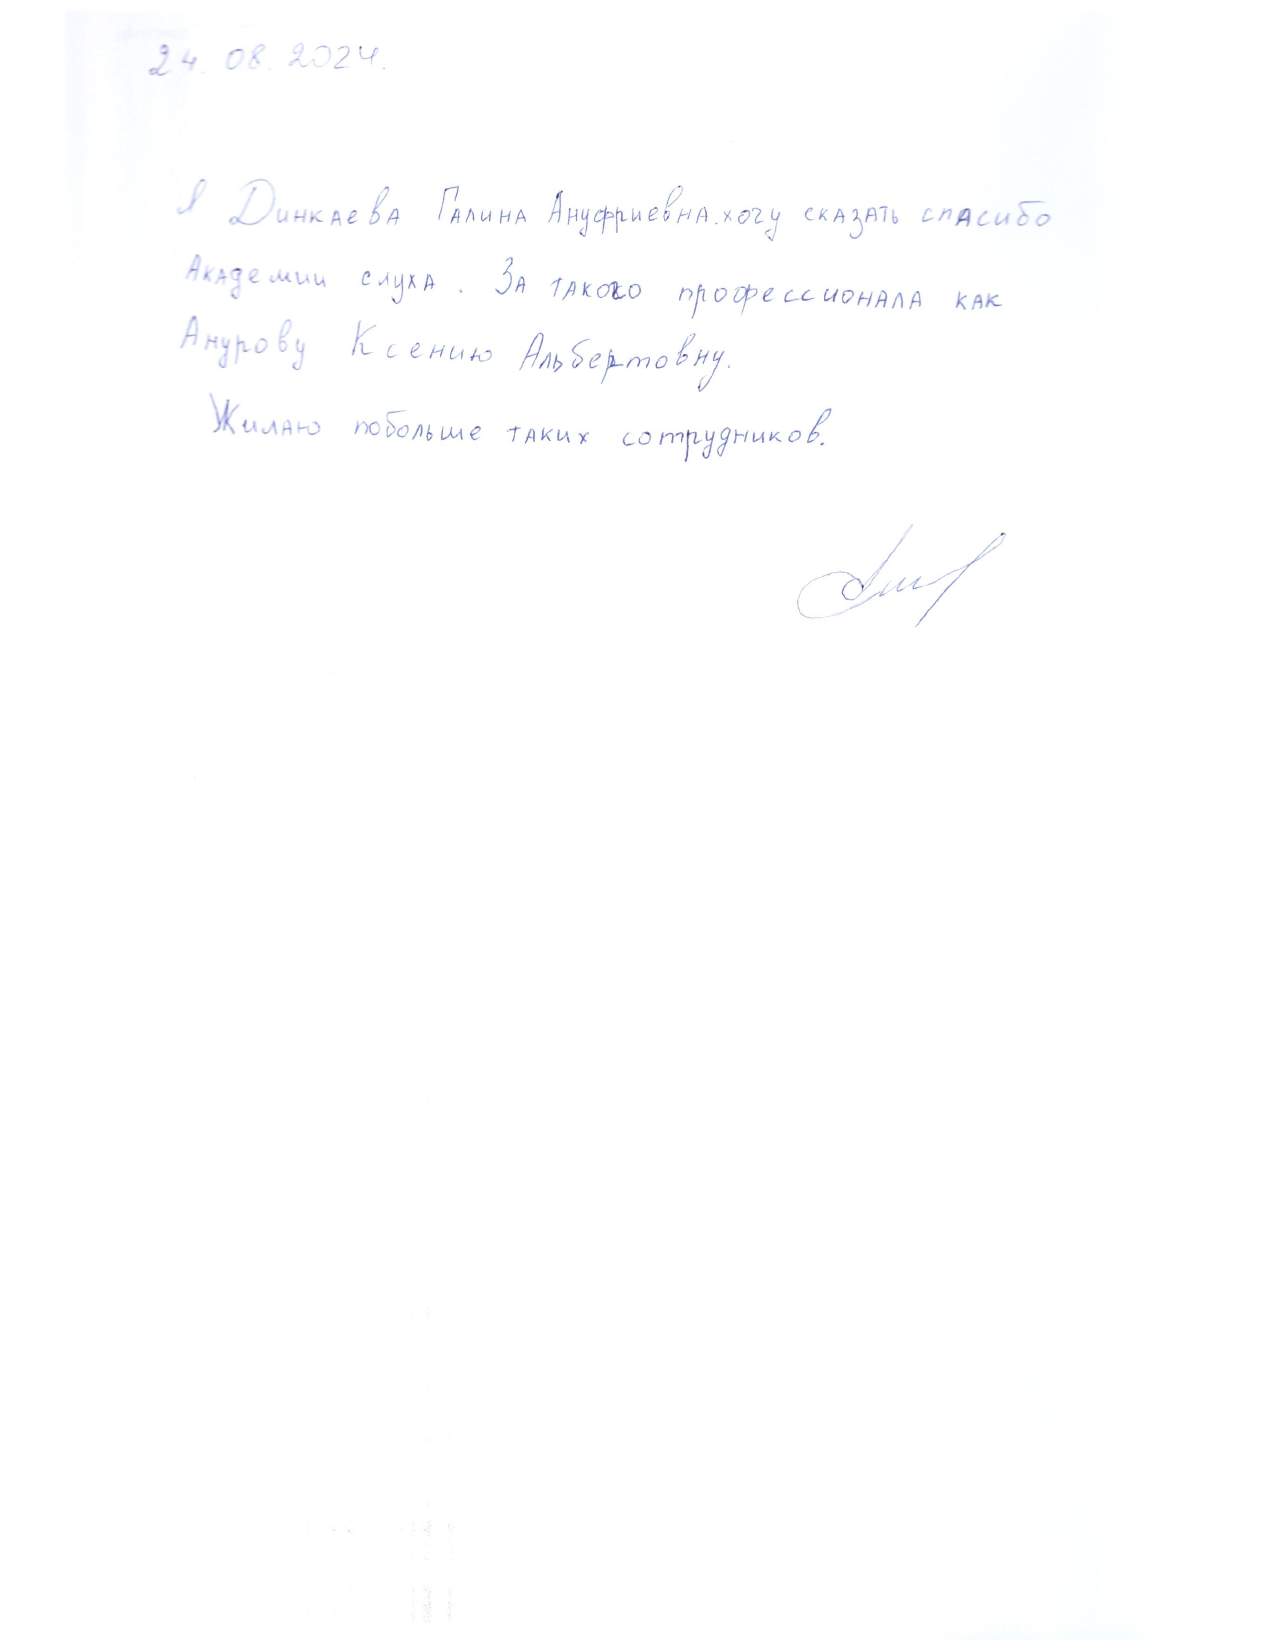 24.08.2024.
Я Динкаева Галина Ануфриевна.хочу сказать спасибо
Академии слуха. За такого профессионала как
Анурову Ксению Альбертовну.
Жилаю побольше таких сотрудников.